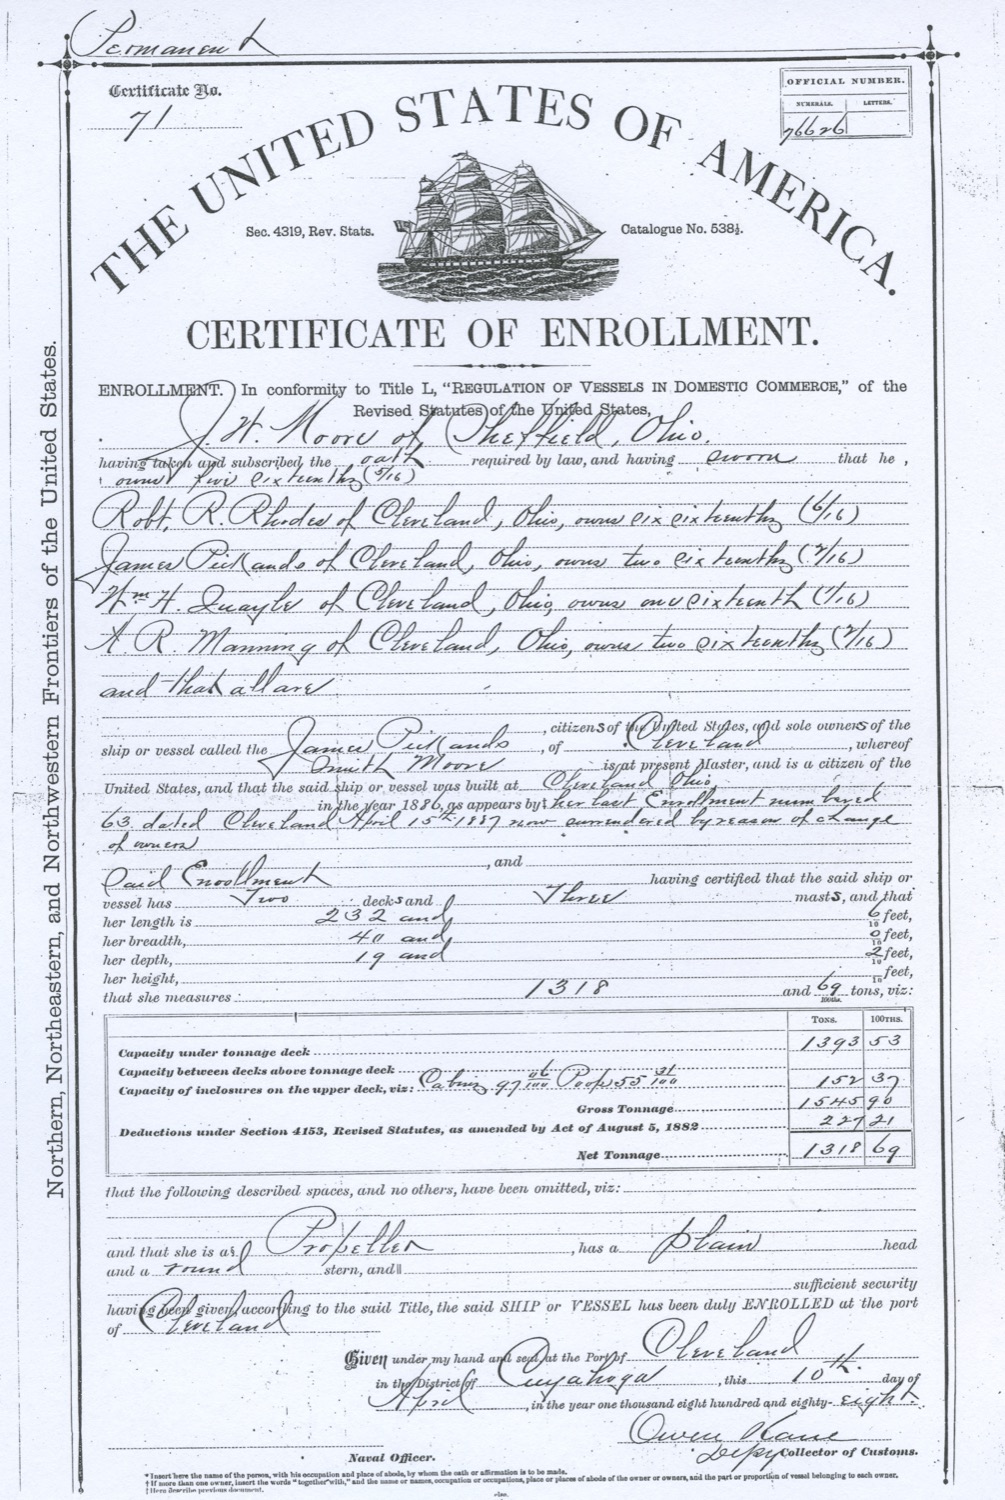 Permanent
Certificate No.
71
OFFICIAL NUMBER.
NUMERALS. LETTERS.
76626
THE UNITED STATES OF AMERICA.
Sec. 4319, Rev. Stats.
Catalogue No. 538½.
CERTIFICATE OF ENROLLMENT.
ENROLLMENT. In conformity to Title L, “REGULATION OF VESSELS IN DOMESTIC COMMERCE,” of the
Revised Statutes of the United States,
J. W. Moore of Sheffield, Ohio.
having taken and subscribed the oath required by law, and having sworn that he,
owns five sixteenths (5/16)
Robt. R. Rhodes of Cleveland, Ohio, owns six sixteenths (6/16)
James Pickands of Cleveland, Ohio, owns two sixteenths (2/16)
Wm H. Quayle of Cleveland, Ohio, owns one sixteenth (1/16)
A. R. Manning of Cleveland, Ohio, owns two sixteenths (2/16)
and that all are
, citizens of the United States, and sole owners of the
ship or vessel called the James Pickands, of Cleveland, whereof
Smith Moore is at present Master, and is a citizen of the
United States, and that the said ship or vessel was built at Cleveland Ohio
in the year 1886, as appears by her last Enrollment numbered
63 dated Cleveland April 15th 1887 now surrendered by reason of change
of owners
, and
Said Enrollment having certified that the said ship or
vessel has Two decks and Three masts, and that
her length is 232 and 6/10 feet,
her breadth, 40 and 0/10 feet,
her depth, 19 and 2/10 feet,
her height, 10 feet,
that she measures 1318 and 69 100ths. tons, viz:
TONS. 100THS.
Capacity under tonnage deck 1393 53
Capacity between decks above tonnage deck
Capacity of inclosures on the upper deck, viz: Cabins 97 06/100 Poop 55 31/100 152 37
Gross Tonnage 1545 90
Deductions under Section 4153, Revised Statutes, as amended by Act of August 5, 1882 227 21
Net Tonnage 1318 69
that the following described spaces, and no others, have been omitted, viz:
and that she is a Propeller, has a plain head
and a round stern, and
sufficient security
having been given according to the said Title, the said SHIP or VESSEL has been duly ENROLLED at the port
of Cleveland
Given under my hand and seal, at the Port of Cleveland
in the District of Cuyahoga, this 10th day of
April, in the year one thousand eight hundred and eighty-eight.
Owen Kane
Naval Officer.
Depy Collector of Customs.
* Insert here the name of the person, with his occupation and place of abode, by whom the oath or affirmation is to be made.
† If more than one owner, insert the words “together with,” and the name or names, occupation or occupations, place or places of abode of the owner or owners, and the part or proportion of vessel belonging to each owner.
‡ Here describe previous document.
Northern, Northeastern, and Northwestern Frontiers of the United States.